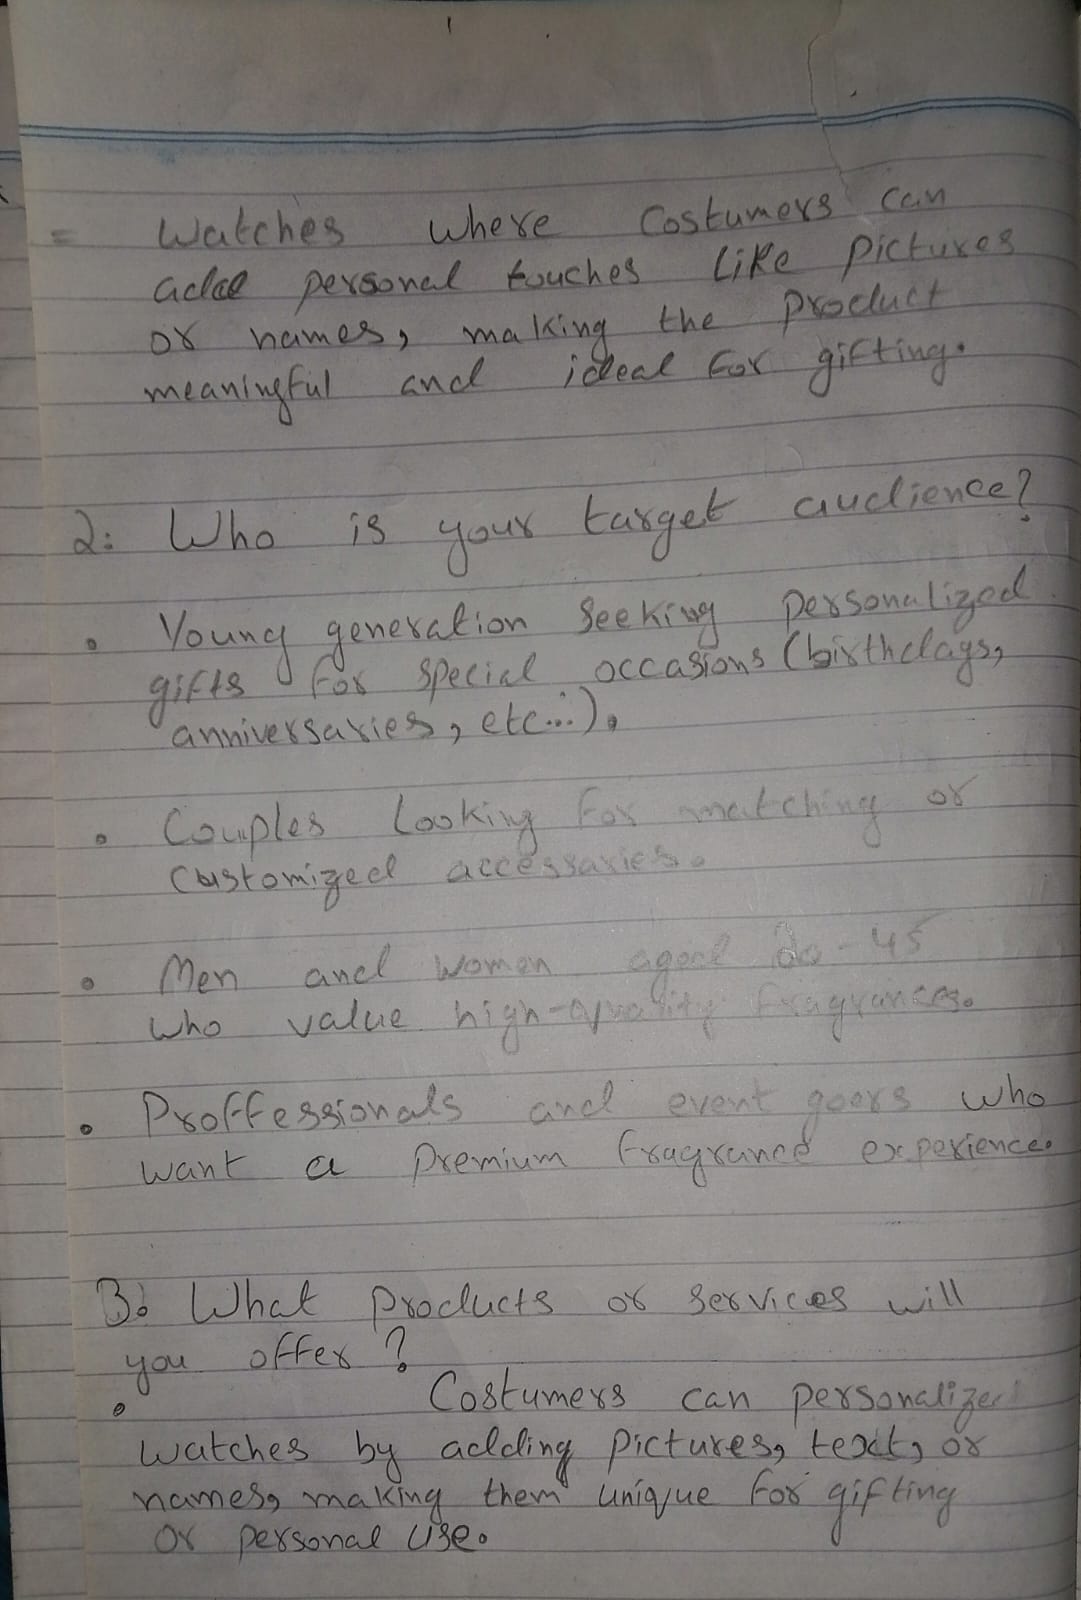 = Watches where Costumers can
add personal touches like pictures
or names, making the product
meaningful and ideal for gifting.
2: Who is your target audience?
• Young generation seeking personalized
gifts for special occasions (birthdays,
anniversaries, etc...).
• Couples looking for matching or
customized accessaries.
• Men and women aged 20-45
who value high-quality fragrances.
• Proffessionals and event goers who
want a premium fragrance experience.
3: What products or services will
you offer?
• Costumers can personalize
watches by adding pictures, text, or
names, making them unique for gifting
or personal use.